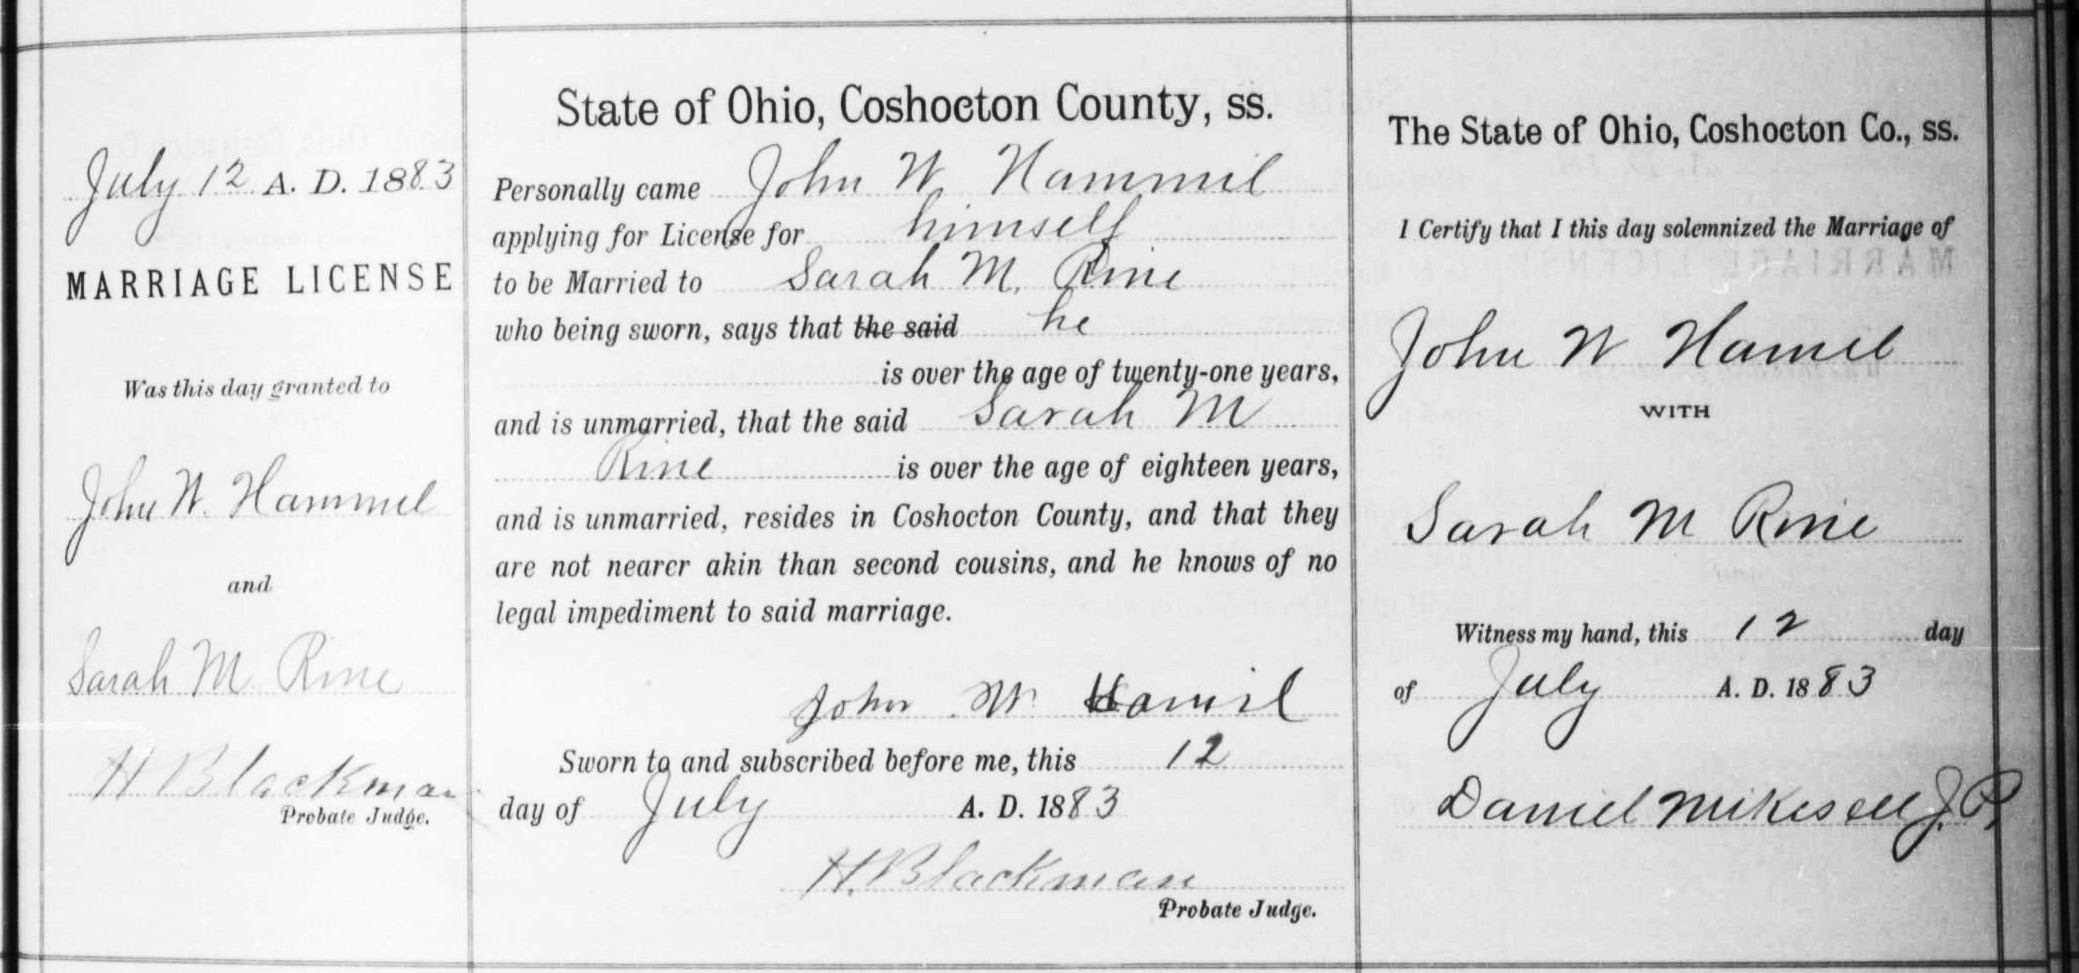 July 12 A. D. 1883
MARRIAGE LICENSE
Was this day granted to
John W. Hammel
and
Sarah M Rine
H Blackman
Probate Judge.
State of Ohio, Coshocton County, ss.
Personally came John W. Hammil
applying for License for himself
to be Married to Sarah M. Rine
who being sworn, says that the said he
is over the age of twenty-one years,
and is unmarried, that the said Sarah M
Rine is over the age of eighteen years,
and is unmarried, resides in Coshocton County, and that they
are not nearer akin than second cousins, and he knows of no
legal impediment to said marriage.
John W. Hamil
Sworn to and subscribed before me, this 12
day of July A. D. 1883
H. Blackman
Probate Judge.
The State of Ohio, Coshocton Co., ss.
I Certify that I this day solemnized the Marriage of
John W Hamel
WITH
Sarah M Rine
Witness my hand, this 12 day
of July A. D. 1883
Daniel Mikesell J. P.